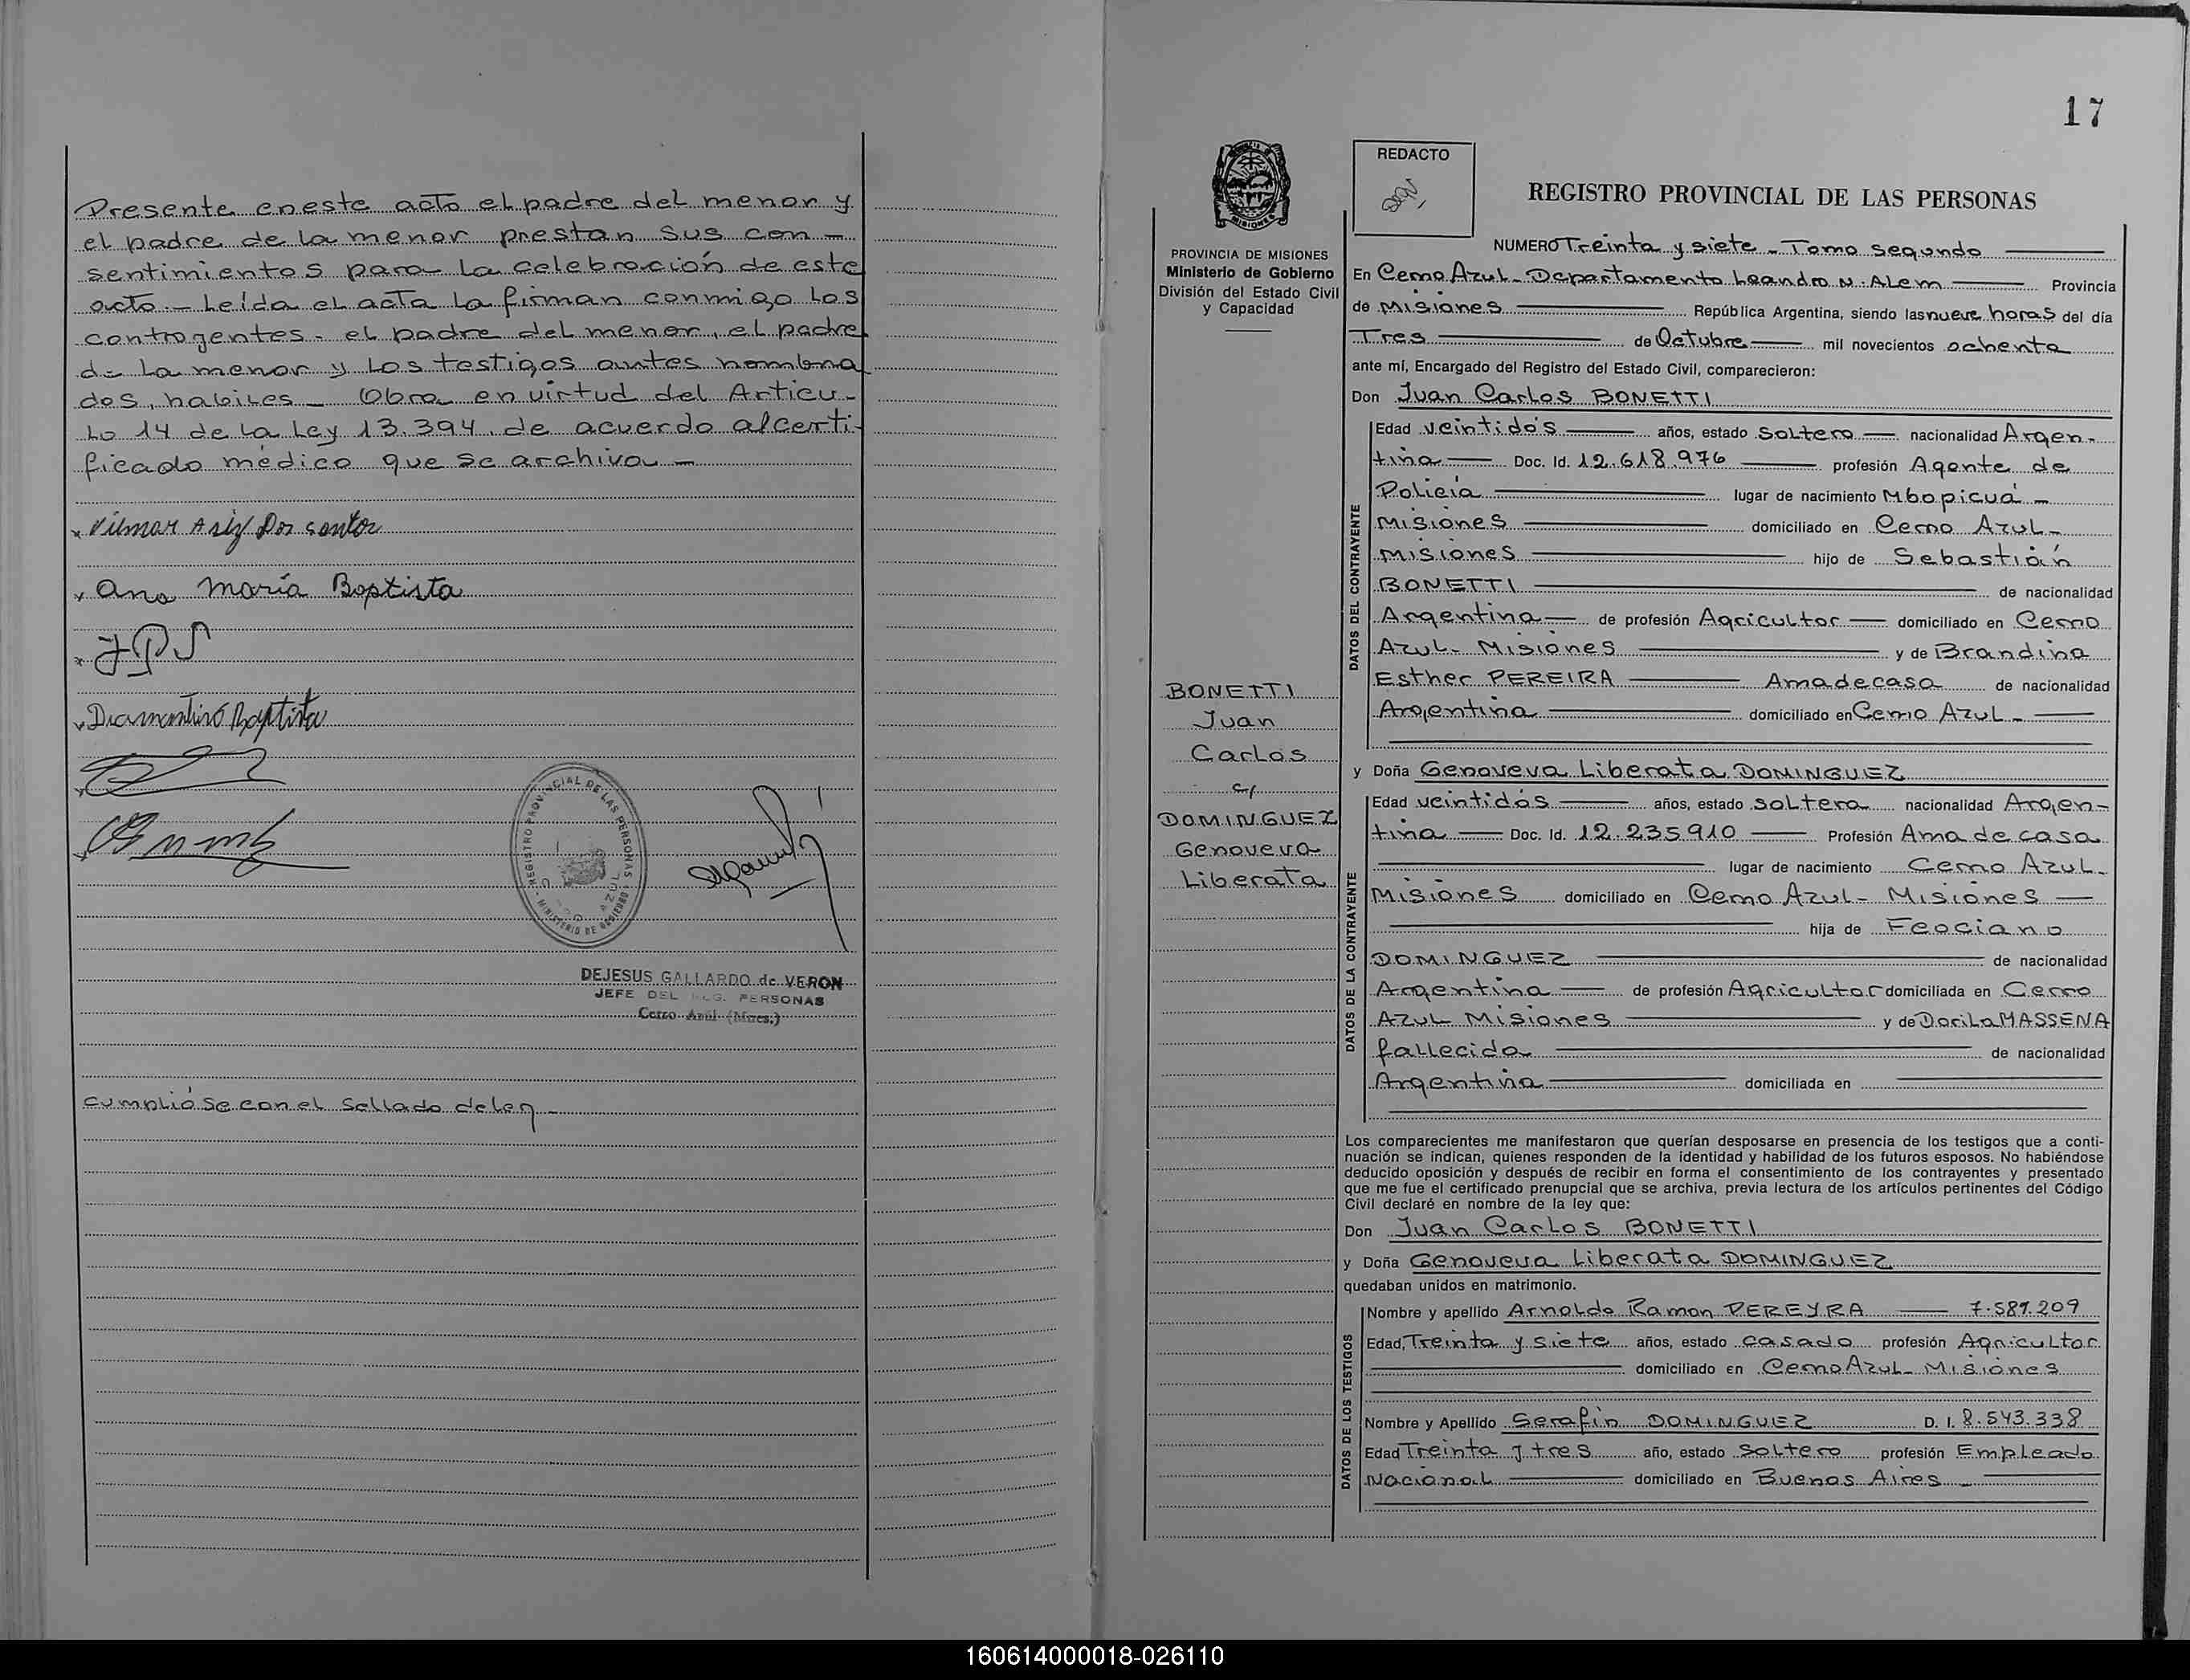 Presente en este acto el padre del menor y
el padre de la menor prestan sus con-
sentimientos para la celebración de este
acto.- Leída el acta la firman conmigo los
contrayentes, el padre del menor, el padre
de la menor y los testigos antes nombra
dos, habiles - Obra en virtud del Articu-
lo 14 de la Ley 13.394, de acuerdo al certi-
ficado médico que se archiva -
Ana María Baptista
Diamantino Baptista
REGISTRO PROVINCIAL DE LAS PERSONAS
MINISTERIO DE GOBIERNO
DEJESUS GALLARDO de VERON
JEFE DEL REG. PERSONAS
Cerro Azul (Mnes.)
cumplióse con el sellado de ley -
17
REDACTO
REGISTRO PROVINCIAL DE LAS PERSONAS
PROVINCIA DE MISIONES
Ministerio de Gobierno
División del Estado Civil
y Capacidad
NUMERO Treinta y siete - Tomo segundo
En Cerro Azul - Departamento Leandro N. Alem Provincia
de Misiones República Argentina, siendo las nueve horas del día
Tres de Octubre mil novecientos ochenta
ante mí, Encargado del Registro del Estado Civil, comparecieron:
Don Juan Carlos BONETTI
DATOS DEL CONTRAYENTE
Edad veintidós años, estado soltero nacionalidad Argen-
tina Doc. Id. 12.618.976 profesión Agente de
Policía lugar de nacimiento Mbopicuá -
Misiones domiciliado en Cerro Azul -
Misiones hijo de Sebastián
BONETTI de nacionalidad
Argentina de profesión Agricultor domiciliado en Cerro
Azul - Misiones y de Brandina
Esther PEREIRA Ama de casa de nacionalidad
Argentina domiciliado en Cerro Azul -
BONETTI
Juan
Carlos
c/
DOMINGUEZ
Genoveva
Liberata
y Doña Genoveva Liberata DOMINGUEZ
DATOS DE LA CONTRAYENTE
Edad veintidós años, estado soltera nacionalidad Argen-
tina Doc. Id. 12.235910 Profesión Ama de casa
lugar de nacimiento Cerro Azul -
Misiones domiciliado en Cerro Azul - Misiones
hija de Feociano
DOMINGUEZ de nacionalidad
Argentina de profesión Agricultor domiciliada en Cerro
Azul Misiones y de Dorila MASSENA
fallecida de nacionalidad
Argentina domiciliada en
Los comparecientes me manifestaron que querían desposarse en presencia de los testigos que a conti-
nuación se indican, quienes responden de la identidad y habilidad de los futuros esposos. No habiéndose
deducido oposición y después de recibir en forma el consentimiento de los contrayentes y presentado
que me fue el certificado prenupcial que se archiva, previa lectura de los artículos pertinentes del Código
Civil declaré en nombre de la ley que:
Don Juan Carlos BONETTI
y Doña Genoveva Liberata DOMINGUEZ
quedaban unidos en matrimonio.
DATOS DE LOS TESTIGOS
Nombre y apellido Arnoldo Ramon PEREYRA 7.589.209
Edad, Treinta y siete años, estado casado profesión Agricultor
domiciliado en Cerro Azul - Misiones
Nombre y Apellido Serafín DOMINGUEZ D. I. 8.543.338
Edad Treinta y tres año, estado soltero profesión Empleado
Nacional domiciliado en Buenos Aires -
160614000018-026110